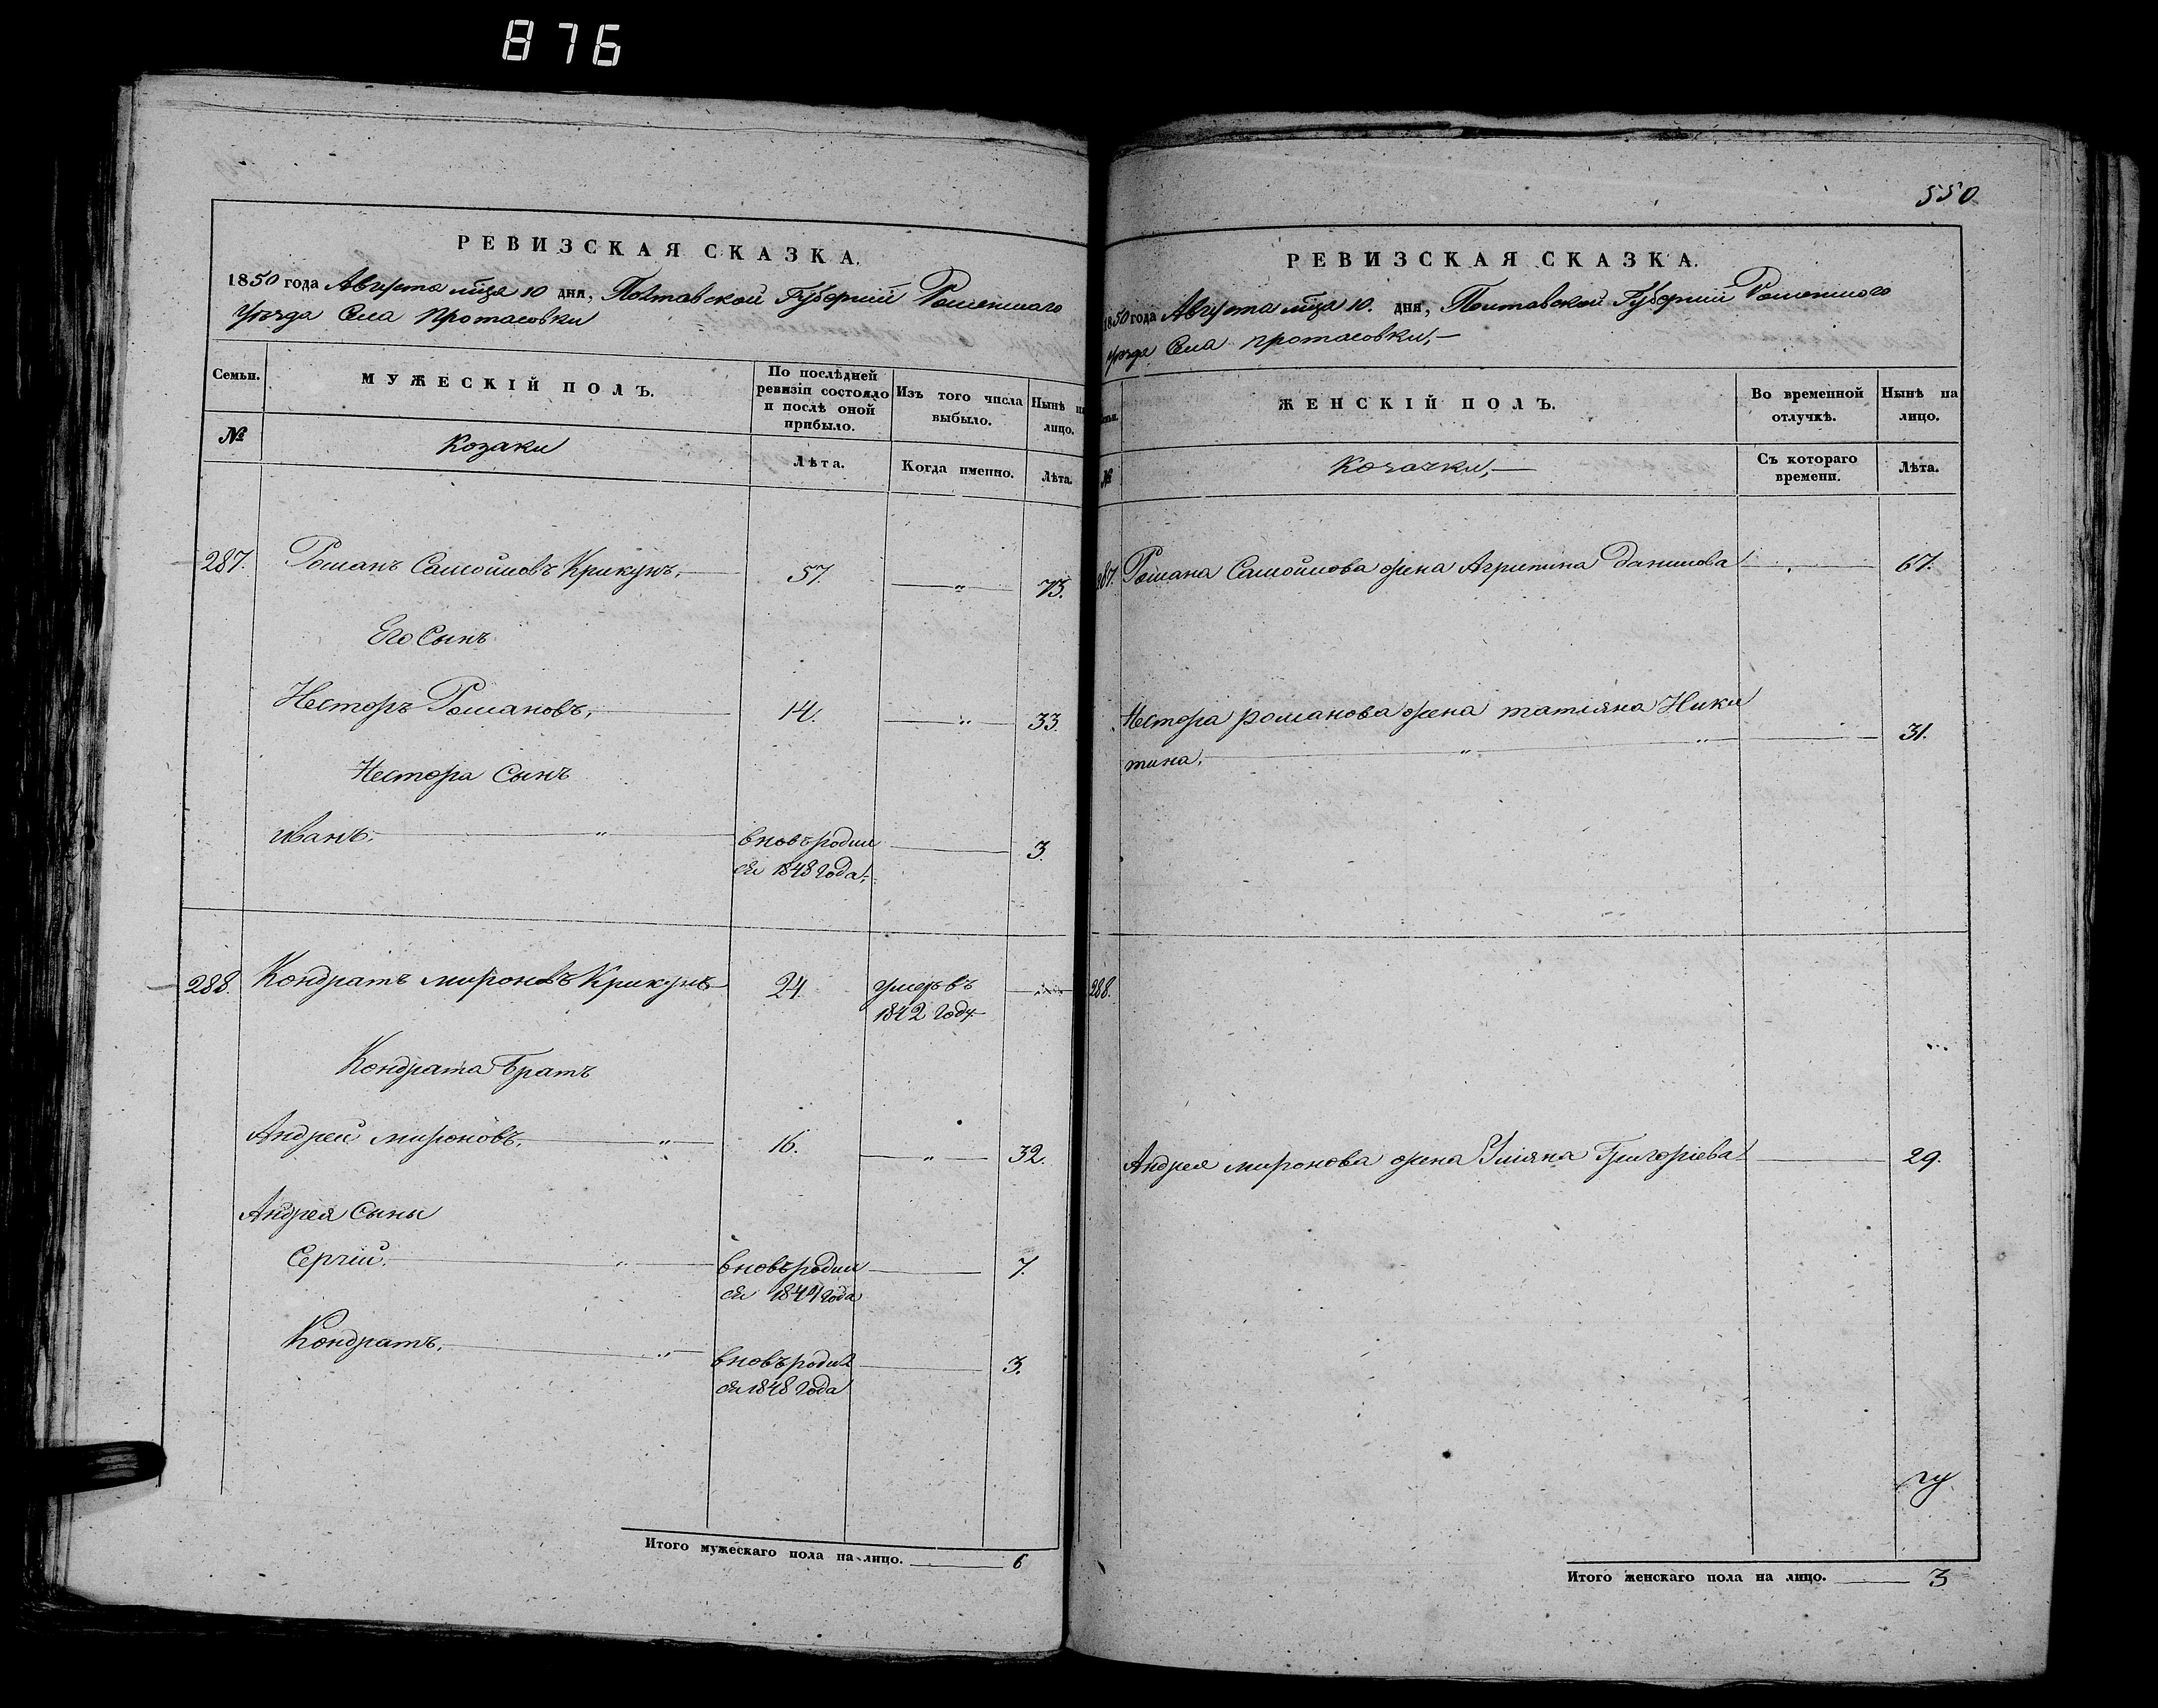 876
РЕВИЗСКАЯ СКАЗКА.
1850 года Августа мца 10 дня, Полтавской Губернии Роменского
Уезда Села Протасовки
Семьи.
МУЖЕСКІЙ ПОЛЪ.
По послѣдней
ревизіи состояло
и послѣ оной
прибыло.
Изъ того числа
выбыло.
Нынѣ на
лицо.
№
Козаки
Лѣта.
Когда именно.
Лѣта.
287. Романъ Самойловъ Крикунъ, 57. 73.
Его Сынъ
Несторъ Романовъ, 14. 33.
Нестора Сынъ
Иванъ. вновъ родил 3.
ся 1848 года.
288. Кондратъ мироновъ Крикунъ 24 умеръ въ
1842 году
Кондрата Братъ
Андрей мироновъ. 16. 32.
Андрея Сыны
Сергій. вновъ родил 7.
ся 1844 года
Кондратъ, вновъ родил 3.
ся 1848 года
Итого мужескаго пола на лицо. 6
550
РЕВИЗСКАЯ СКАЗКА.
1850 года Августа мца 10. дня, Полтавской Губернии Роменского
Уезда Села протасовки,
ЖЕНСКІЙ ПОЛЪ.
Во временной
отлучкѣ.
Нынѣ на
лицо.
№
Козачки,
Съ котораго
времени.
Лѣта.
287. Романа Самойлова жена Агрипина Данилова 67.
Нестора романова жена татіяна Ники
тина, 31.
288.
Андрея миронова жена Уліяна Григоріева 29.
Итого женскаго пола на лицо. 3